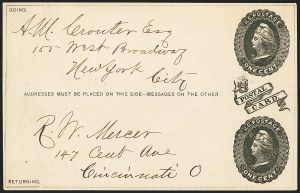 GOING.
U.S. POSTAGE
ONE CENT.
A.M. Crouter Esq
100 West Broadway
New York City
POSTAL
CARD
ADDRESSES MUST BE PLACED ON THIS SIDE—MESSAGES ON THE OTHER.
U.S. POSTAGE
ONE CENT.
R. W. Mercer
147 Cent Ave
Cincinnati O
RETURNING.